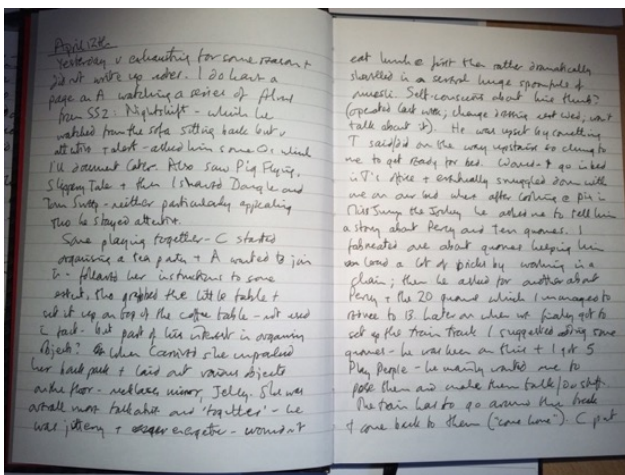 April 12th
Yesterday v exhausting for some reason +
did not write up notes. I do have a
page on A watching a series of films
from SS2: Nightshift - which he
watched from the sofa sitting back but v
attentive + alert - asked him some Qs which
I'll document later. Also saw Pig Flying,
Slippery Tale + then I showed Dangle and
Tom Sutty - neither particularly appealing
Tho he stayed attentive.
Some playing together - C started
organising a tea party + A wanted to join
in - followed her instructions to some
extent. She grabbed the little table +
set it up on top of the coffee table - not used
but part of his interest in organising
objects? When C arrived she unpacked
her back pack + laid out various objects
on the floor - necklace, mirror, Jelly. She was
overall more talkative and 'together' - he
was jittery + energetic - wouldn't
eat lunch @ first then rather dramatically
shovelled in a several huge spoonfuls of
muesli. Self-conscious about his thumb?
(operated last week, change dressing next wed, won't
talk about it). He was upset by something
T said/did on the way upstairs so clung to
me to get ready for bed. Would go in bed
in T's office + eventually snuggled down with
me on our bed when after looking @ pic in
Miss Jump the Jockey he asked me to tell him
a story about Percy and Ten quones. I
fabricated one about quones helping him
load a lot of bricks by working in a
chain; then he asked for another about
Percy + the 20 quones which I managed to
reduce to 13. Later on when we finally got to
set up the train track I suggested adding some
quones - he was keen on this + I got 5
Play People - he mainly wanted me to
pose them and make them talk/do stuff.
The train had to go around the track
& come back to them ("come home"). C put